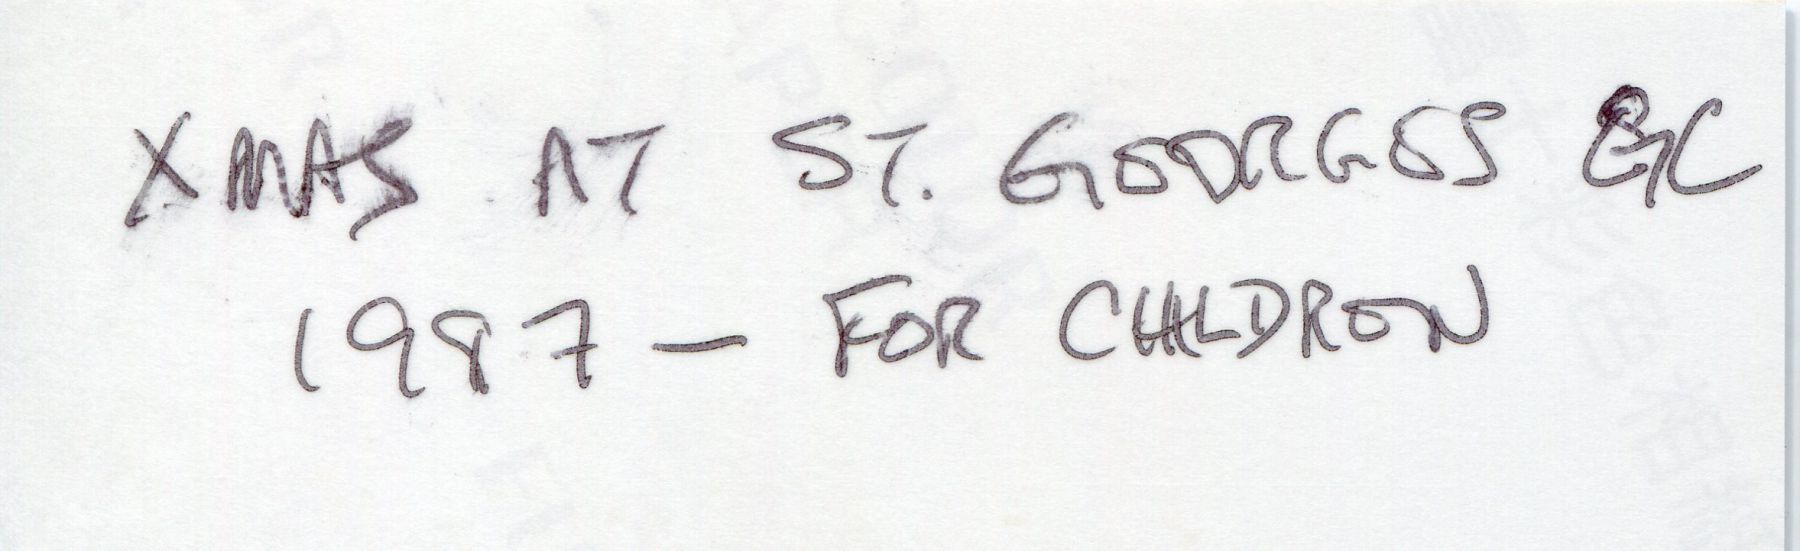 XMAS AT ST. GEORGES
1987 — FOR CHILDREN